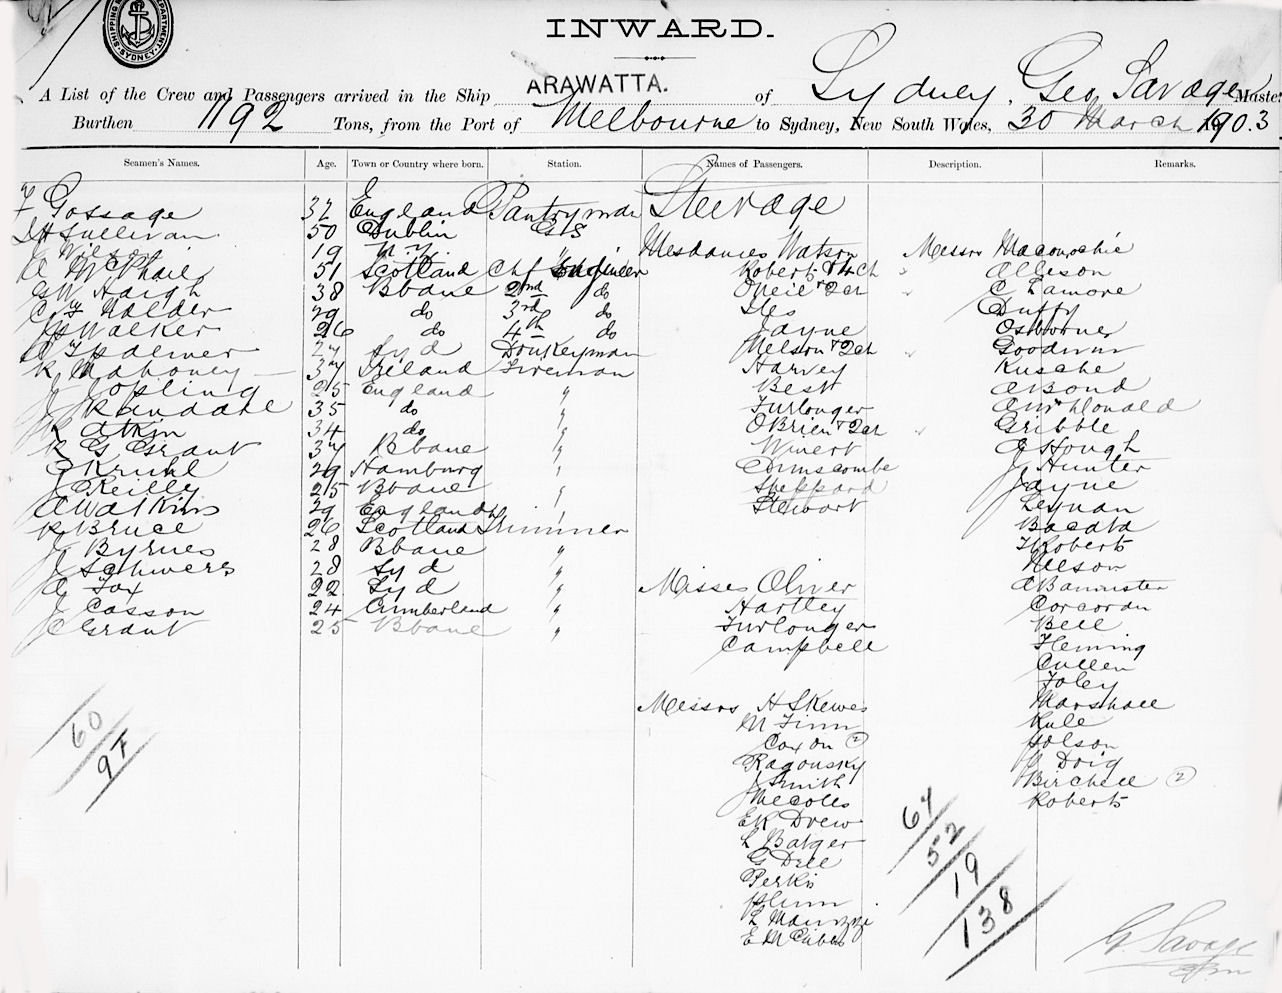 INWARD.
A List of the Crew and Passengers arrived in the Ship ARAWATTA. of Sydney, Geo Savage Master
Burthen 1192 Tons, from the Port of Melbourne to Sydney, New South Wales, 30 March 1903
Seamen's Names. Age. Town or Country where born. Station. Names of Passengers. Description. Remarks.
F Gossage 32 England Pantryman Steerage
Sullivan 50 Dublin G S
19 N.Z. " Mesdames Watson Messrs Maconochie
McPhail 51 Scotland Chf Engineer Robert & 4 Ch " Allison
G W Haigh 38 Bbane 2nd do O'Neil & 2 ch " C Lamore
Holder 29 do 3rd do Iles Duffy
Walker 26 do 4th do Jayne Osborne
Spalmer 27 Syd Donkeyman Nelson & 2 ch " Goodwin
R Mahoney 37 Ireland Fireman Harvey Kusche
J Jopling 25 England " Best A Bond
J Randall 35 do " Furlonger McDonald
Atkin 34 do " O'Brien & 2 ch " Gribble
R G Grant 37 Bbane " Winert A Hough
C Kruhl 29 Hamburg " Dunscombe J Hunter
J O'Reilly 25 Bbane " Sheppard Jayne
A Watkins 29 England " Stewart Leynan
R Bruce 26 Scotland Trimmer Bacata
J Byrnes 28 Bbane " T Roberts
J Schwers 28 Syd " Misses Oliver Nelson
A Fox 22 Syd " Hartley A Bannister
J Casson 24 Cumberland " Furlonger Corcoran
J C Grant 25 Bbane " Campbell Bell
Fleming
Cullen
Foley
Messrs H Skewes Marshall
M Finn Rule
Cox On (2) Jolson
Ragousky J Doig
J Smith Birchell (2)
Mecoles Roberts
E K Drew
L Batger
G Dell
Perkis
L Mauzzi
E McCubb
60
97
64
52
19
138
G. Savage